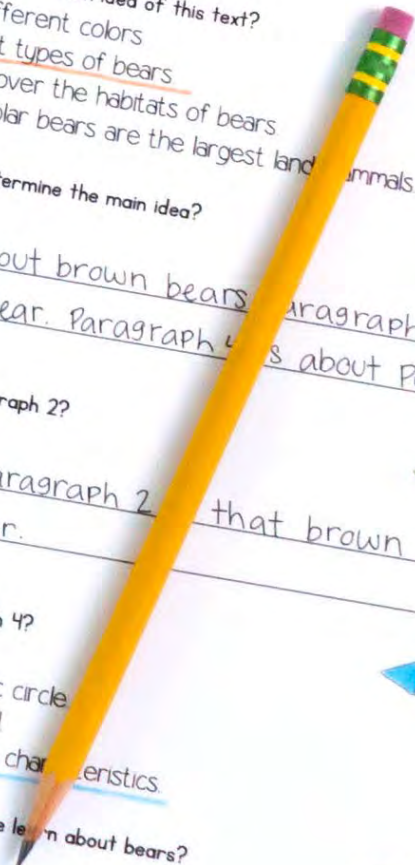 of this text?
fferent colors
types of bears
over the habitats of bears
lar bears are the largest land mmals
ermine the main idea?
out brown bears aragraph
ear. Paragraph s about P
raph 2?
aragraph 2 that brown
r.
4?
circle
char eristics.
le n about bears?